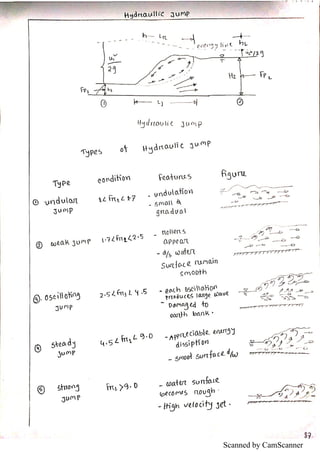 Hydraullic Jump
energy line
h₂
u₁²
2g
H₂
Fr₂
Fr₁
h₁
①
Lj
②
Hydraulic Jump
Types of Hydraulic Jump
Type condition Features figure
① undular Jump
1 < Fr₁ < 1.7
- undulation
- small & gradual
② weak Jump
1.7 < Fr₁ < 2.5
- rollers appear
- d/s water surface remain smooth
③. Oscillating Jump
2.5 < Fr₁ < 4.5
- each oscillation produces large wave
- Damaged to earth bank.
④ Steady Jump
4.5 < Fr₁ < 9.0
- Appreciable energy dissiption
- smoot surface d/w
⑤ strong Jump
Fr₁ > 9.0
- water surface becomes rough
- High velocity jet.
Scanned by CamScanner